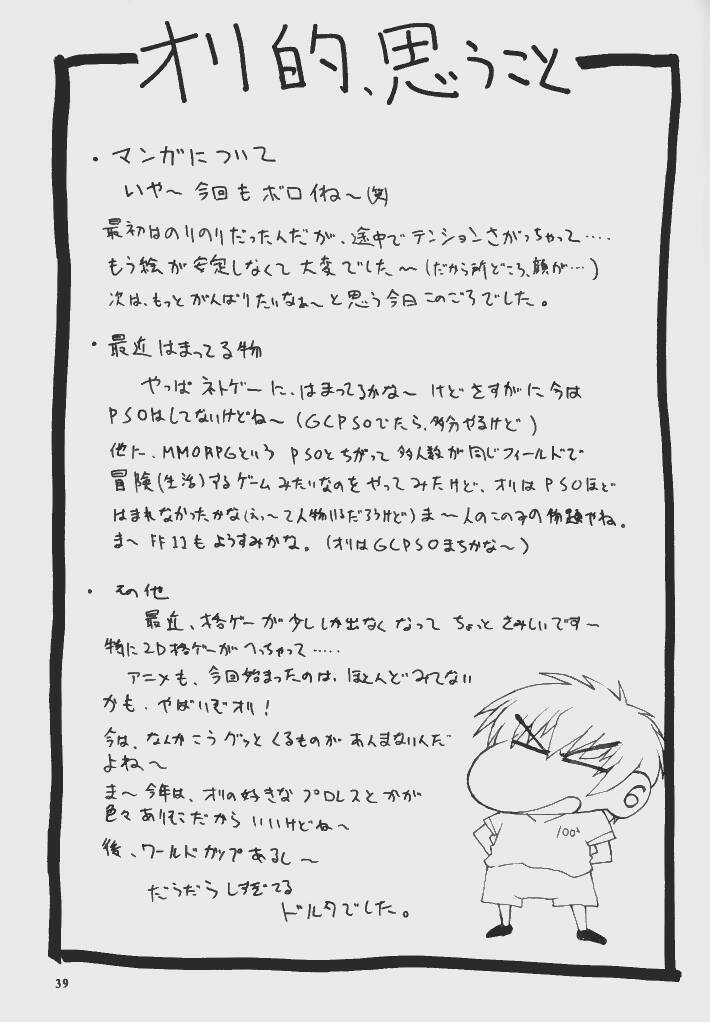 オリ的、思うこと
・マンガについて
いや〜今回もボロイね〜(笑)
最初はのりのりだったんだが、途中でテンションさがっちゃって‥‥
もう絵が安定しなくて大変でした〜(だから所どころ、顔が…)
次は、もっとがんばりたいなぁ〜と思う今日このごろでした。
・最近はまってる物
やっぱネトゲーに、はまってるかな〜けどさすがに今は
PSOはしてないけどね〜(GCPSOでたら、多分やるけど)
他に、MMORPGという PSOとちがって多人数が同じフィールドで
冒険(生活)するゲームみたいなのをやってみたけど、オリはPSOほど
はまれなかったかな(えっ〜て人物いるだろうけど)ま〜人のこのみの物題やね。
ま〜FF11もようすみかな。(オリはGCPSOまちかな〜)
・その他
最近、格ゲーが少ししか出なくなってちょっとさみしいです〜
特に2D格ゲーがへっちゃって‥‥‥
アニメも、今回始まったのは、ほとんどみてない
かも、やばいぞオリ！
今は、なんかこうグッとくるものがあんまないんだ
よね〜
ま〜今年は、オリの好きなプロレスとかが
色々ありそこだからいいけどね〜
後、ワールドカップあるし〜
だらだらしすぎてる
ドルタでした。
100%
39